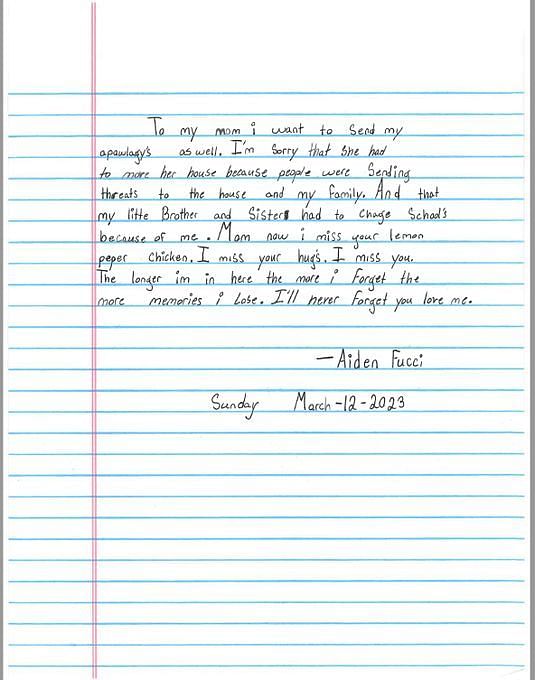 To my mom i want to Send my
apawlagy's as well. I'm Sorry that She had
to more her house because people were Sending
threats to the house and my family. And that
my litte Brother and Sisters had to Chage School's
because of me. Mom now i miss your lemon
peper Chicken. I miss your hug's. I miss you.
The longer im in here the more i Forget the
more memories i Lose. I'll never Forget you love me.
—Aiden Fucci
Sunday March-12-2023